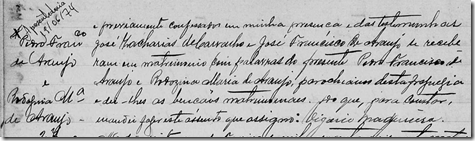 Amasiada
19/06/74
Pedro Franco
de Araujo
e
Rodozina Mª
de Araujo
e previamente confessados em minha presença e das testemunhas
José Zacharias de Carvalho e José Francisco de Araujo se recebe-
ram em matrimonio com palavras do presente Pedro Francisco de
Araujo e Rodozina Maria de Araujo, parochianos desta freguesia
e dei-lhes as bençãos matrimoniaes. Do que, para constar,
mandei fazer este assento que assigno. Vigario